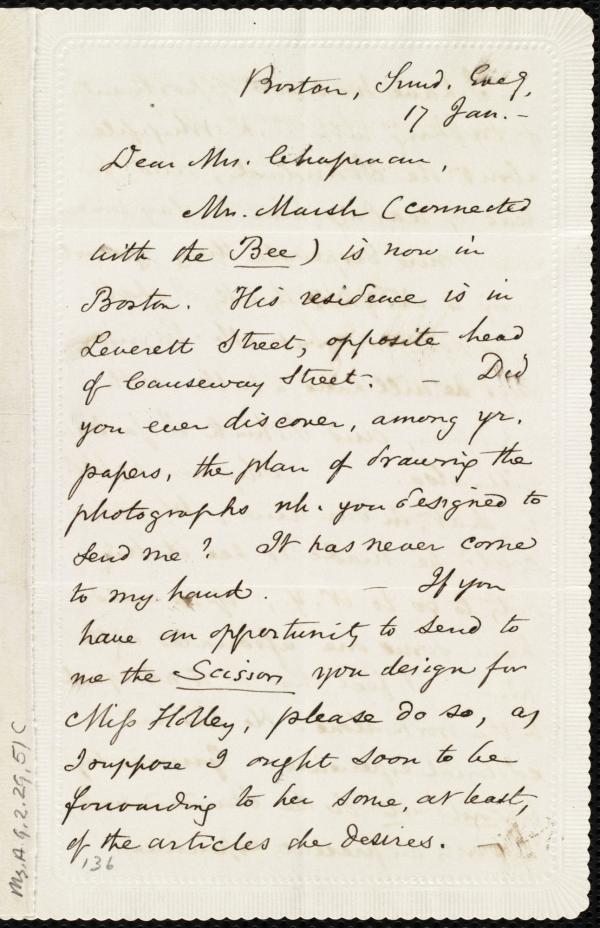 Boston, Sund. Eveg,
17 Jan. -
Dear Mrs. Chapman,
Mr. Marsh (connected
with the Bee) is now in
Boston. His residence is in
Leverett Street, opposite head
of Causeway Street. - Did
you ever discover, among yr.
papers, the plan of drawing the
photographs wh. you designed to
send me? It has never come
to my hand. - If you
have an opportunity to send to
me the Scissors you design for
Miss Holley, please do so, as
I suppose I ought soon to be
forwarding to her some, at least,
of the articles she desires. -
136
Ms.A.9.2.29,51C